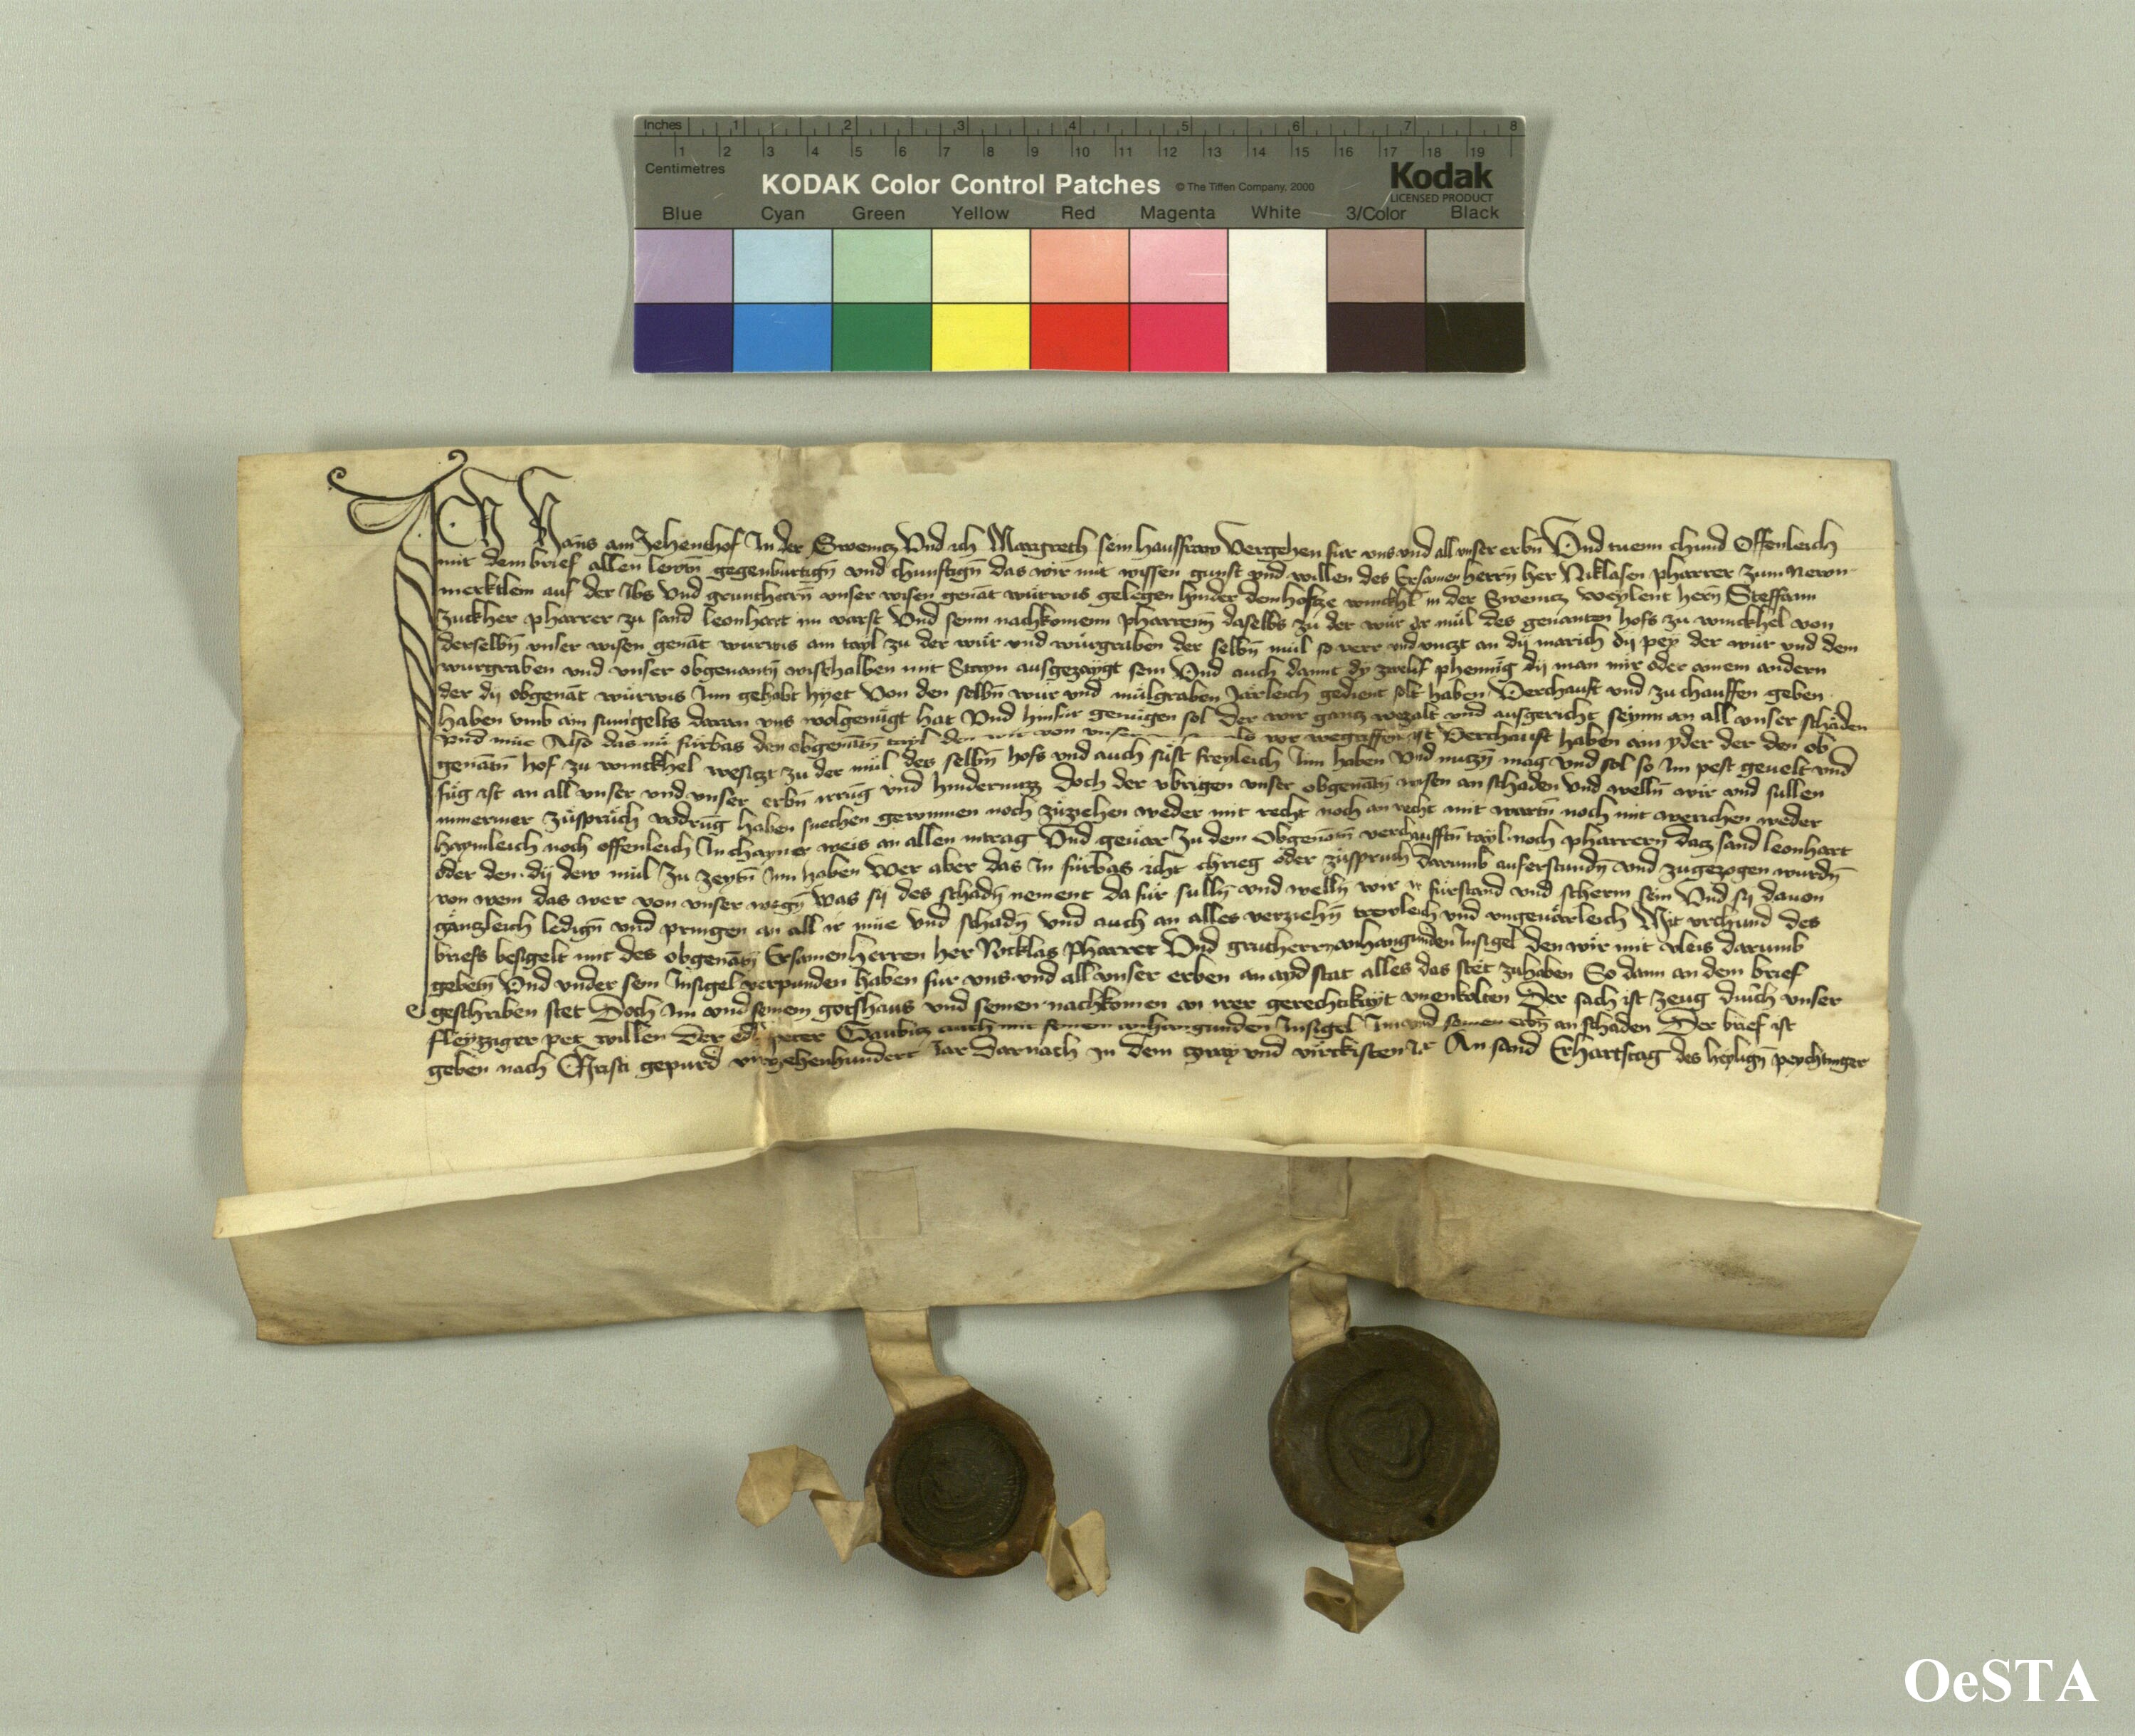 Inches 1 2 3 4 5 6 7 8
1 2 3 4 5 6 7 8 9 10 11 12 13 14 15 16 17 18 19
Centimetres
KODAK Color Control Patches © The Tiffen Company, 2000 Kodak
LICENSED PRODUCT
Blue Cyan Green Yellow Red Magenta White 3/Color Black
ICh Hans am Zehenthof In der Swemcz Vnd ich Margreth sein hausfraw Vergehen fur vns vnd all vnser erbn̄ Vnd tuenn chund Offenleich
mit dem brief allen lewtn̄ gegenburtign̄ vnd chunftign̄ das wir mit wissen gunst vnd willen des Ersamen herrn̄ her Niklasen pharrer zum Newn
merktlem auf der Ibs Vnd gruntherrn̄ vnser wisen genāt wurwis gelegen hinder dem hofcze winckhl in der Swemcz Weylent hern̄ Steffann
Zuckher pharrer zu sand leonhart im varst Vnd senn nachkomenn pharrenn̄ daselbs zu der wur der mül des genanten hofs zu winckhel von
derselbn̄ vnser wisen genāt wurwis ain tayl zu der wür vnd würgraben der selbn̄ mül so verr vnd vnczt an dy marich dy pey der wür vnd dem
wurgraben vnd vnser obgenantn̄ wishalben mit Stayn ausgezaygt sein Vnd auch damit dy zwelif phennig dy man mir oder ainem andern
der dy obgenāt würwis Inn gehabt hyet Von den selbn̄ wur vnd mülgraben Jarleich gedient solt haben Verchauft vnd zu chauffen geben
haben vmb ain sumgelts daran vns wolgenügt hat Vnd hinfur genügen sol der wir gancz beczalt vnd ausgericht seynn an all vnser schäden
Vnd müe Also das nü fürbas den obgenātn̄ tayl den wir von vnser wegriffen ist Verchauft haben ain yder der den ob
genātn̄ hof zu winckhel wesiczt zu der mül des selbn̄ hofs vnd auch süst freyleich Inn haben Vnd nuczn̄ mag vnd sol so Im pest geuelt vnd
füg ist an all vnser vnd vnser erbn̄ irrūg vnd hindernüzz Doch der vbrigen vnser obgenātn̄ wisen an schaden Vnd welln̄ wir vnd sullen
nimermer züsprüch vodrūg haben suechen gewinnen noch züziehen weder mit recht noch an recht mit wartn̄ noch mit werichen weder
haymleich noch offenleich In chayner weis an allen intrag Vnd geuär Zu dem Obgenātn̄ verchaufftn̄ tayl noch pharrern̄ dacz sand leonhart
oder den dy dew mül Zu zeytn̄ Inn haben Wer aber das In fürbas icht chrieg oder züspruch darumb auferstundn̄ vnd zugezogen wurdn̄
von wem das wer von vnser wegn̄ Was sy des schadn̄ nement da für sulln̄ vnd welln̄ wir Ir fürstand vnd scherm sein Vnd sy dauon
gänczleich ledign̄ vnd pringen an all ir müe Vnd schadn̄ Vnd auch an alles verziehn̄ trewleich vnd vngeuärleich Mit vrchund des
briefs besigelt mit des obgenātn̄ Ersamen herren her Nicklas pharrer Vnd grutherrn anhangunden Insigel den wir mit vleis darumb
gebetn̄ Vnd vnder sein Insigel verpunden haben fur vns vnd all vnser erben an ayd stat alles das stet zuhaben So dann an dem brief
geschriben stet Doch Im vnd seinem gotshaus vnd seinen nachkomen an irer gerechtikayt vnenkolten Der sach ist zeug durch vnser
fleyzziger pet willen Der edl peter auch mit seinem anhangunden Insigel Im vnd seinen erbn̄ an schaden Der brief ist
geben nach Christi gepurd virczehenhundert Jar Darnach in dem czway vnd virczkisten Jr An sand Erhartstag des heylign̄ peychtinger
OeSTA